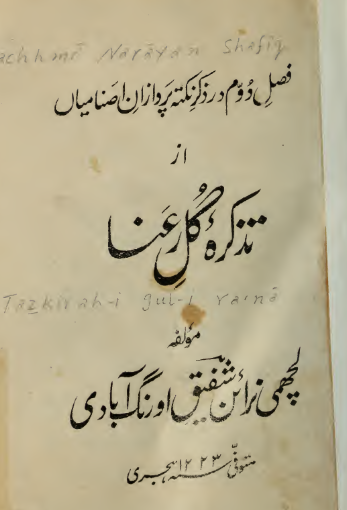 achhmī Narāyan Shafīq
فصلِ دُوّم در ذکر نکتہ پردازانِ اصنامیاں
از
تذکرۂ گُلِ رعنا
Tazkirah-i gul-i ra'nā
مؤلفہ
لچھمی نرائن شفیق اورنگ آبادی
متوفّی ۱۲۲۳ سنہ ہجری